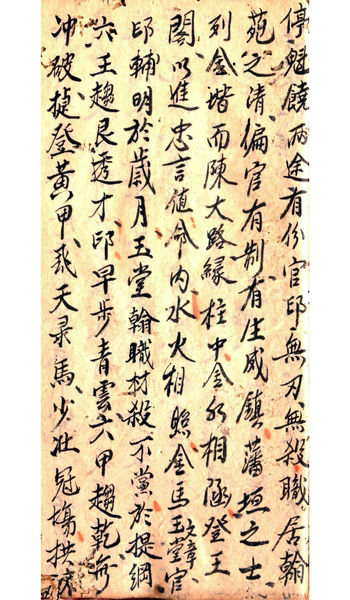 停魁饒兩途有份官印無刃無殺職居翰
苑之清偏官有制有生威鎮藩垣之士
列金堦而陳大路緣柱中金水相涵登玉
閣以進忠言值命內水火相照金馬玉堂官
印輔明於歲月玉堂翰職材殺不黨於提綱
六壬趨艮透才印早步青雲六甲趨乾無
冲破捷登黃甲飛天录馬少壯冠塲拱